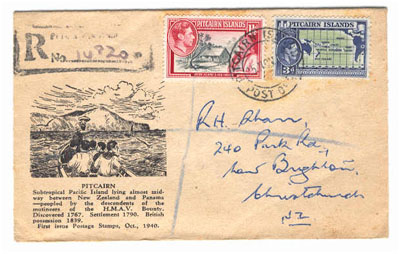 R
No
PITCAIRN ISLANDS
PITCAIRN ISLANDS
3d
POST O
PITCAIRN
Subtropical Pacific Island lying almost mid-
way between New Zealand and Panama
—peopled by the descendents of the
mutineers of the H.M.A.V. Bounty.
Discovered 1767. Settlement 1790. British
possession 1839.
First issue Postage Stamps, Oct., 1940.
R.H.
240 Park Rd,
New Brighton,
Christchurch
NZ